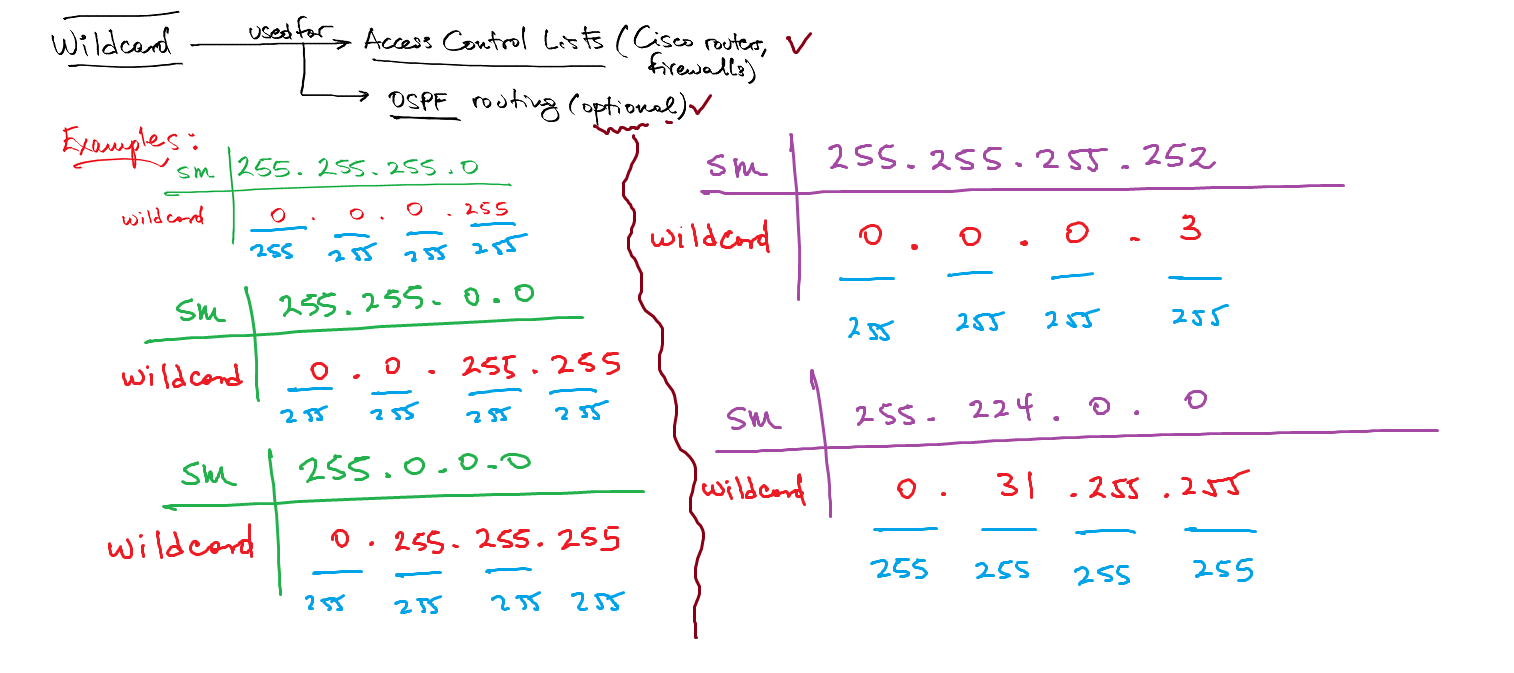 Wildcard used for Access Control Lists (Cisco routers,
firewalls)
OSPF routing (optional)
Examples:
sm 255.255.255.0
wildcard 0.0.0.255
255 255 255 255
sm 255.255.0.0
wildcard 0.0.255.255
255 255 255 255
sm 255.0.0.0
wildcard 0.255.255.255
255 255 255 255
sm 255.255.255.252
wildcard 0.0.0.3
255 255 255 255
sm 255.224.0.0
wildcard 0.31.255.255
255 255 255 255